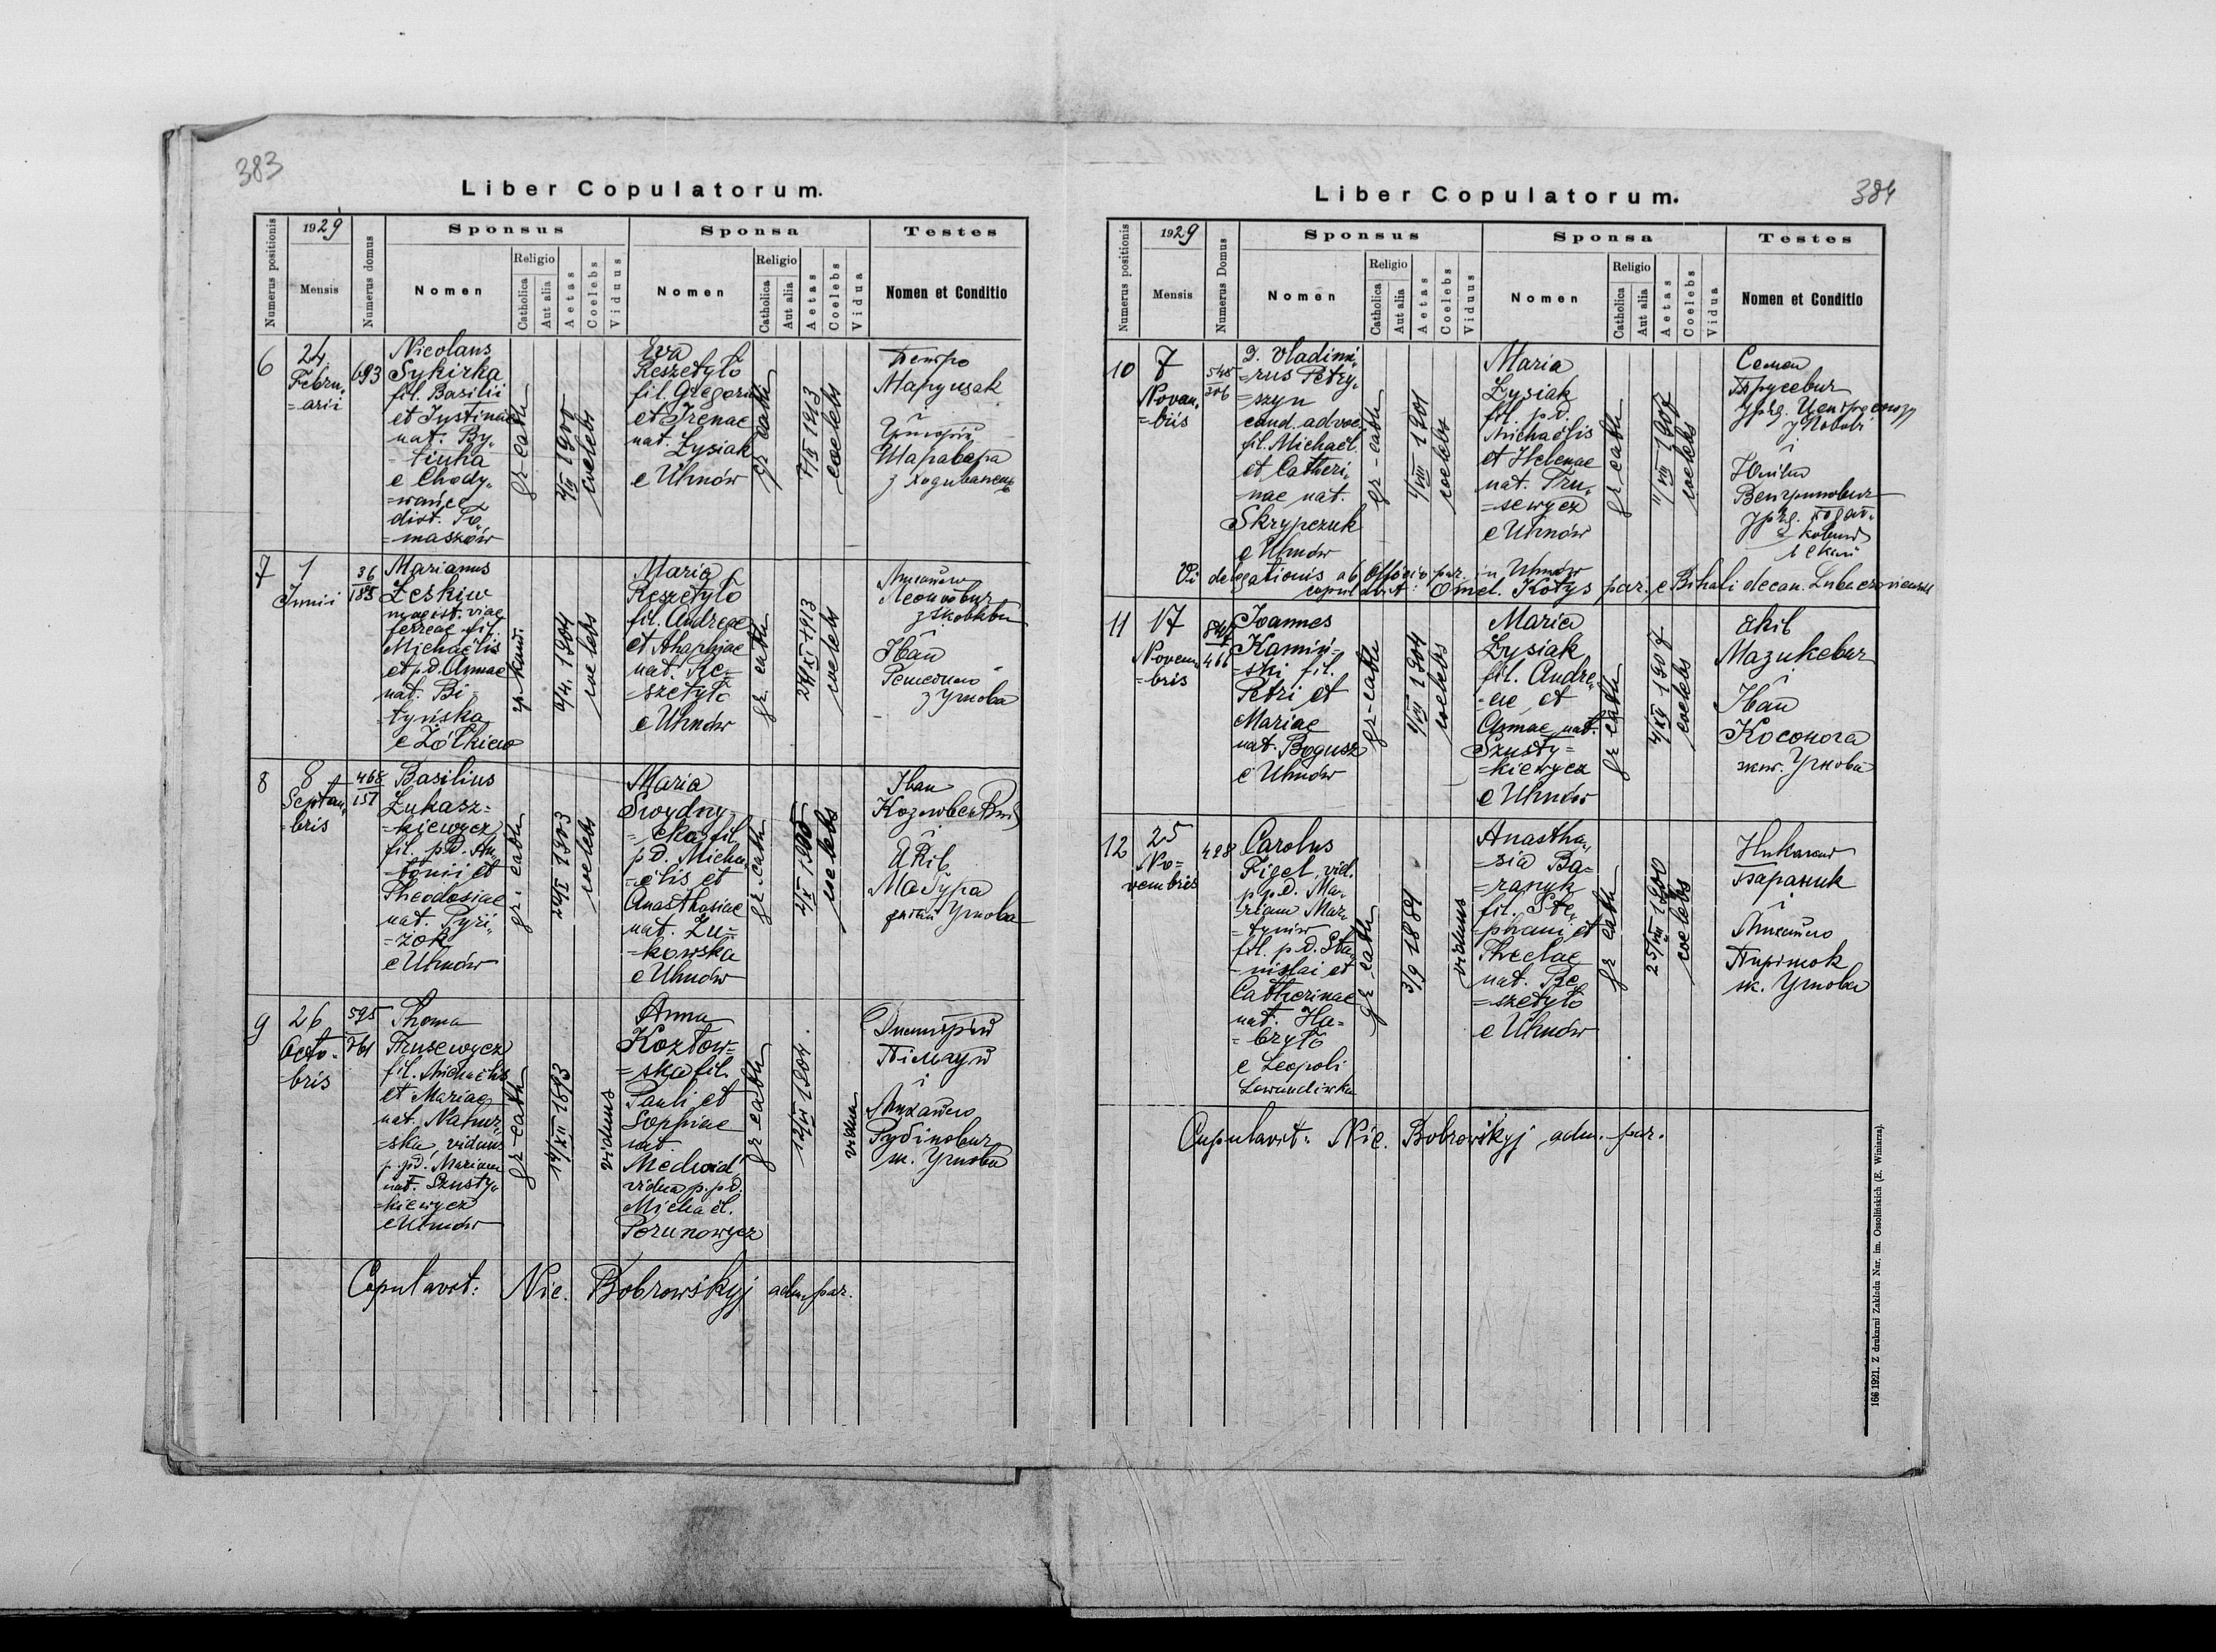 383
Liber Copulatorum.
Numerus positionis
1929
Mensis
Numerus domus
Sponsus
Nomen
Religio
Catholica
Aut alia
Aetas
Coelebs
Viduus
Sponsa
Nomen
Religio
Catholica
Aut alia
Aetas
Coelebs
Vidua
Testes
Nomen et Conditio
6
24
Febru„
=arii
693
Nicolaus
Sykirka
fil. Basilii
et Justinae
nat. By„
e Chody„
=wańce
dist. To„
=maszów
gr. cath
1900
coelebs
Eva
Reszetyło
fil. Gregorii
et Irenae
nat. Łysiak
e Uhnów
gr. cath
1913
coelebs
Петро
Марущак
і
Григорій
Шаравара
7
1
Junii
36
185
Marianus
Leskiw
magist. viae
ferreae fil.
Michaëlis
et p.d. Annae
nat. Bi„
=tyńska
e Żółkiew
1904
coelebs
Maria
Reszetyło
fil. Andreae
et Ahaphiae
nat. Re=
=szetyło
e Uhnów
gr. cath
24/XI 1913
coelebs
Іван
з Угнова
8
8
Septem„
=bris
468
151
Basilius
Łukasz=
=kiewycz
fil. p.d. An„
=tonii et
Theodosiae
nat. Pyri„
=żok
e Uhnów
gr. cath
1903
coelebs
Maria
Swydny„
=cka fil.
p.d. Micha„
=ëlis et
Anasthasiae
nat. Żu=
=kowska
e Uhnów
gr. cath
1905
coelebs
Іван
і
Яків
Мазура
Угнова
9
26
Octo„
=bris
595
761
Thoma
Trusewycz
fil. Michaëlis
et Mariae
nat. Nahur„
=ska, viduus
p. p.d. Mariam
nat. Szusty„
=kiewycz
e Uhnów
gr-cath
14/XII 1893
viduus
Anna
Kozłow=
=ska fil.
Pauli et
Sophiae
nat.
Medwid'
vidua p. p.d.
Michaël.
Porunowycz
gr cath
1904
vidua
Дмитрій
і
Михайло
м. Угнова
Copulavit: Nic. Bobrowśkyj adm. par.
384
Liber Copulatorum.
Numerus positionis
1929
Mensis
Numerus Domus
Sponsus
Nomen
Religio
Catholica
Aut alia
Aetas
Coelebs
Viduus
Sponsa
Nomen
Religio
Catholica
Aut alia
Aetas
Coelebs
Vidua
Testes
Nomen et Conditio
10
7
Novem„
=bris
548
306
D. Vladimi„
=rus Petry„
=szyn
cand. advoc.
fil. Michaël.
et Catheri„
nae nat.
Skrypczuk
e Uhnów
gr-cath
1/VIII 1901
coelebs
Maria
Łysiak
fil. p.d.
Michaëlis
et Helenae
nat. Tru„
=sewycz
e Uhnów
gr cath
1907
coelebs
Семен
Трусевич
і
Vi delegationis ab Officio par. in Uhnów
copulavit: Omel. Kotys par. e Bihali decan. Lubaczoviensis
11
17
Novem„
=bris
466
Joannes
Kamiń=
=ski fil.
Petri et
Mariae
nat. Bogusz
e Uhnów
gr-cath
1904
coelebs
Maria
Łysiak
fil. Andre„
=ae et
Annae nat.
Szusty=
=kiewycz
e Uhnów
gr cath
4/XII 1907
coelebs
Яків
Мазуkевич
і
Іван
Косонога
Угнова
12
25
No=
vembris
428
Carolus
Figel, vid.
p. p.d. Ma„
riam Mar„
=tyniw
fil. p.d. Sta„
=nislai et
Catherinae
nat. Ha=
=bryło
e Leopoli
gr-cath
3/9 1889
viduus
Anastha„
=sia Ba=
=ranyk
fil. Ste„
phani et
Theclae
nat. Re
=szetyło
e Uhnów
gr cath
25/VIII 1900
coelebs
Николай
Бараник
і
Михайло
Пиріжок
м. Угнова
Copulavit: Nic. Bobrowśkyj adm. par.
166 1921. Z drukarni Zakłada Nar. im. Ossolińskich (E. Winiarza).